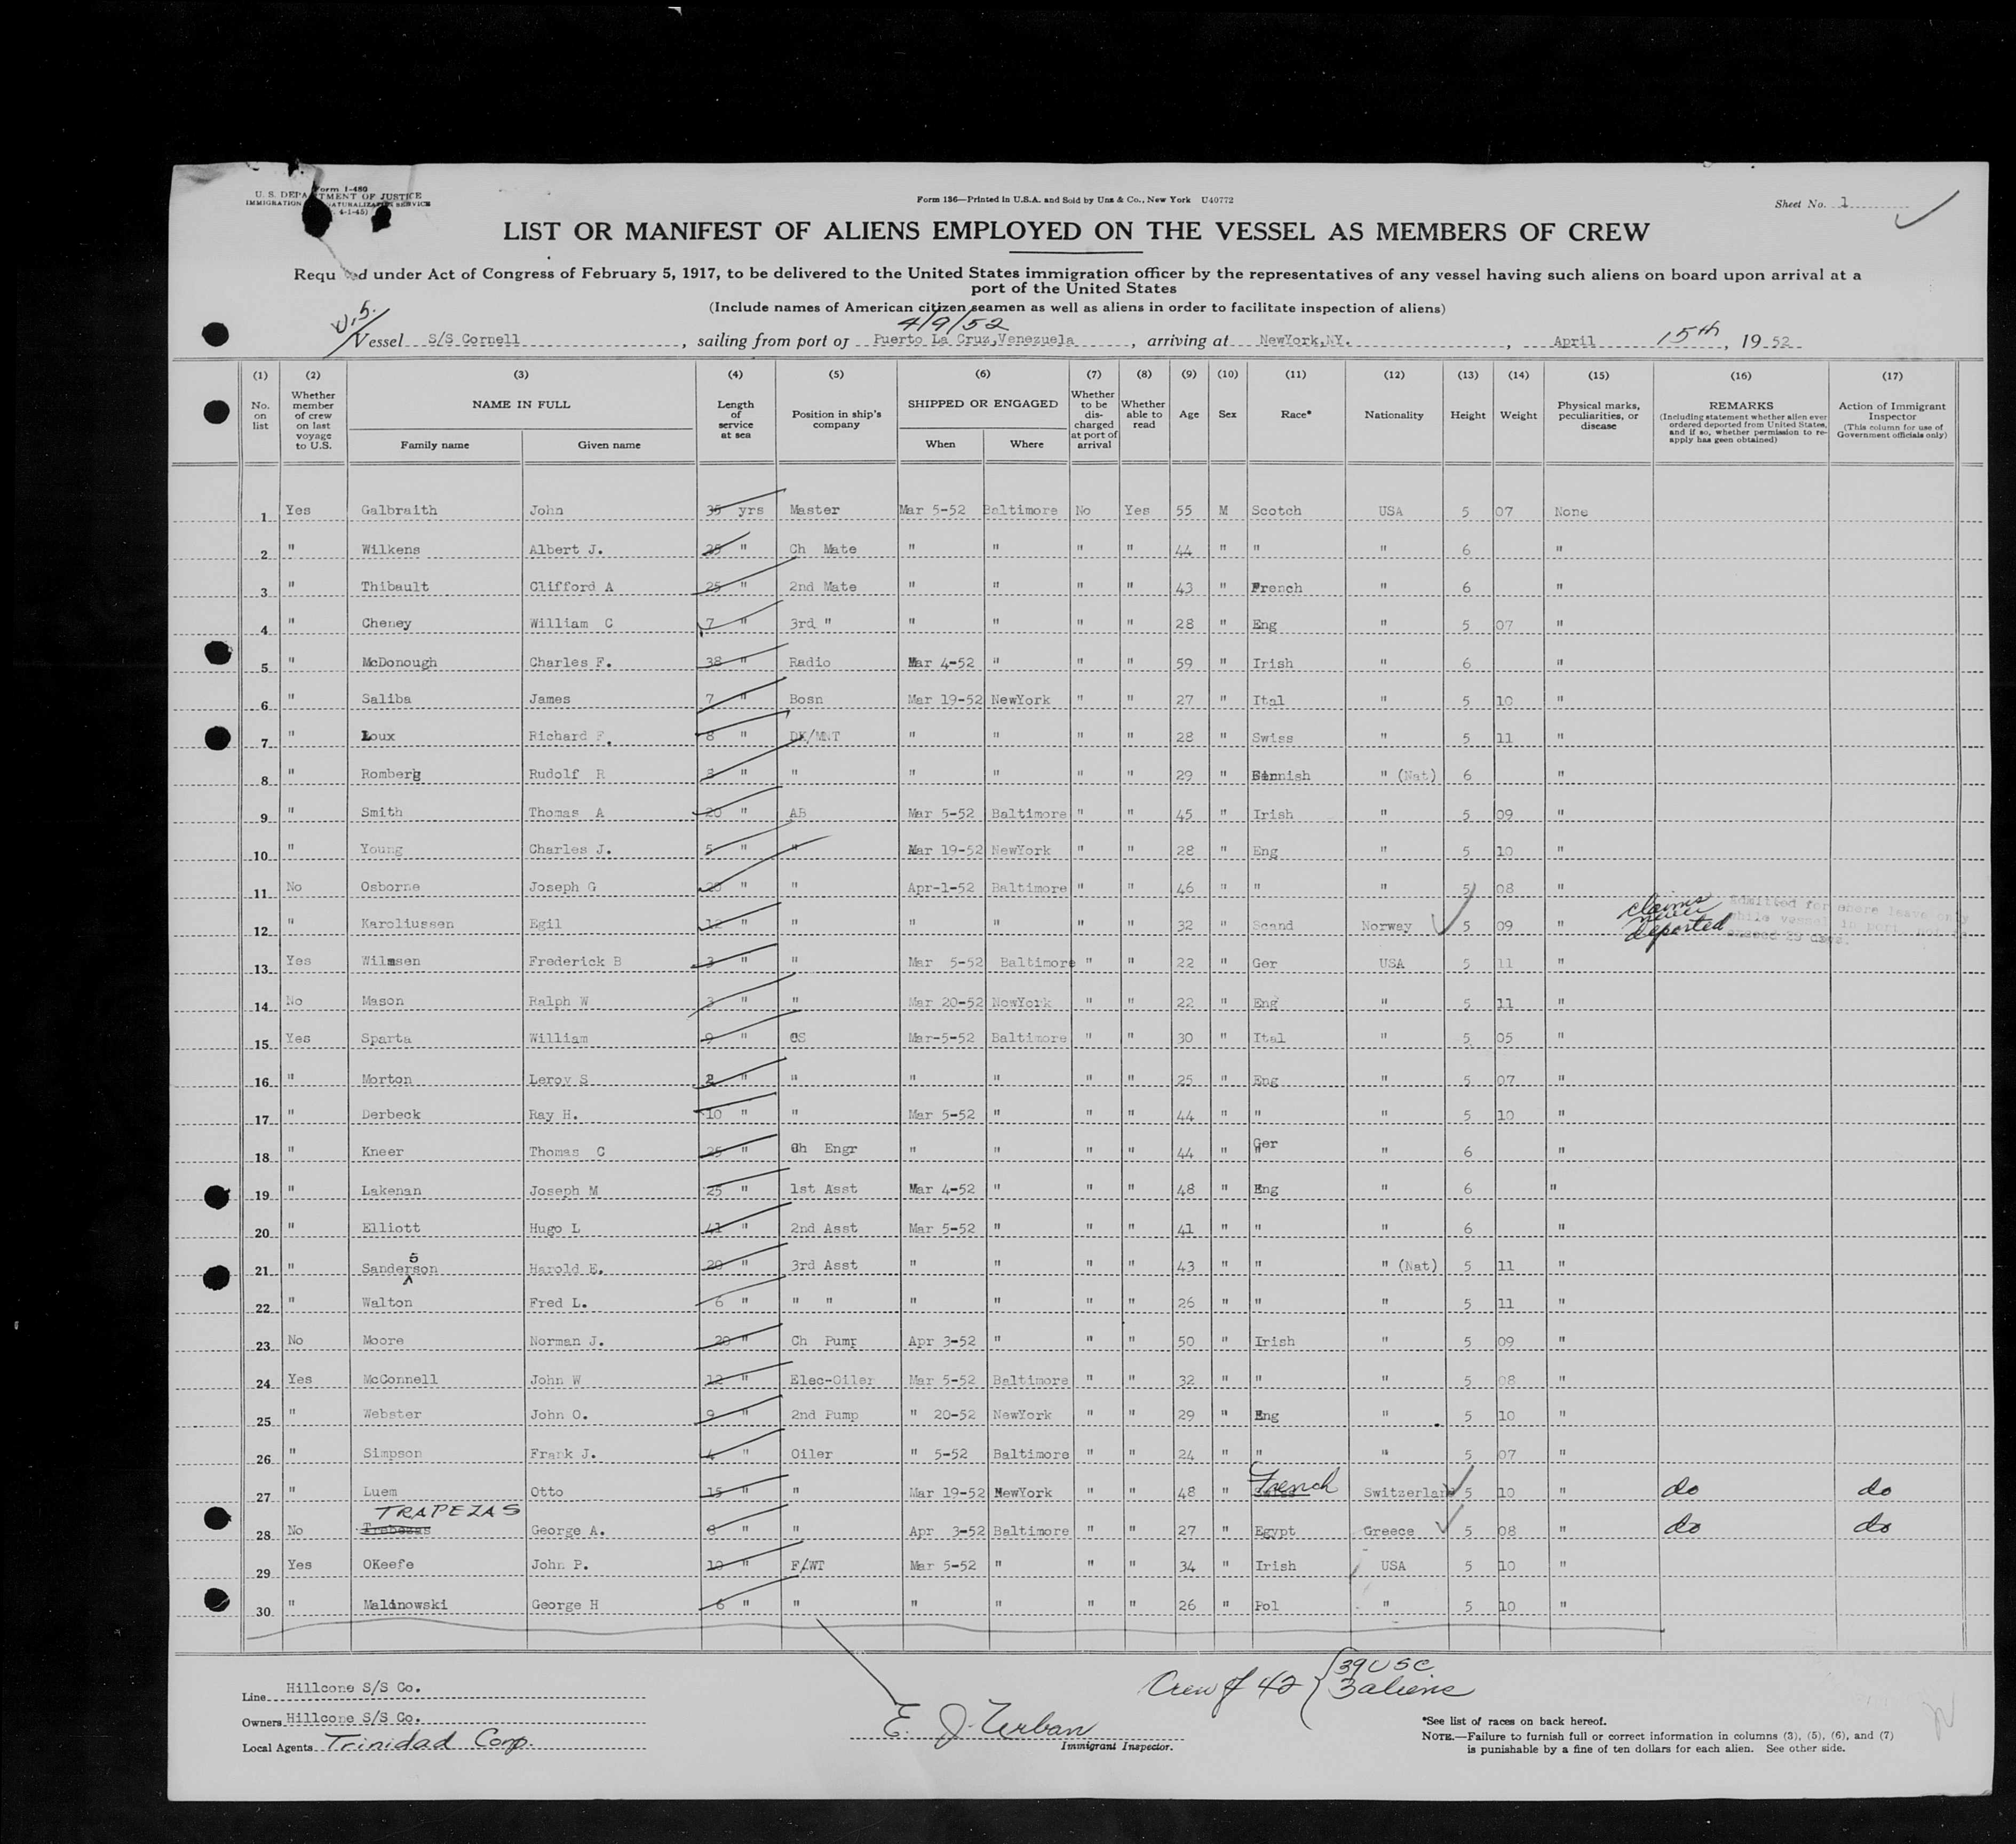 Form I-480
U. S. DEPARTMENT OF JUSTICE
IMMIGRATION NATURALIZATION SERVICE
4-1-45)
Form 136—Printed in U.S.A. and Sold by Unz & Co., New York U40772
Sheet No. 1
LIST OR MANIFEST OF ALIENS EMPLOYED ON THE VESSEL AS MEMBERS OF CREW
Requ ed under Act of Congress of February 5, 1917, to be delivered to the United States immigration officer by the representatives of any vessel having such aliens on board upon arrival at a
port of the United States
(Include names of American citizen seamen as well as aliens in order to facilitate inspection of aliens)
U.S. 4/9/52
Vessel S/S Cornell, sailing from port of Puerto La Cruz,Venezuela, arriving at NewYork,NY., April 15th, 19 52
(1) (2) (3) (4) (5) (6) (7) (8) (9) (10) (11) (12) (13) (14) (15) (16) (17)
No. on list Whether member of crew on last voyage to U.S. NAME IN FULL Family name Given name Length of service at sea Position in ship's company SHIPPED OR ENGAGED When Where Whether to be discharged at port of arrival Whether able to read Age Sex Race* Nationality Height Weight Physical marks, peculiarities, or disease REMARKS (Including statement whether alien ever ordered deported from United States, and if so, whether permission to reapply has geen obtained) Action of Immigrant Inspector (This column for use of Government officials only)
1 Yes Galbraith John 35 yrs Master Mar 5-52 Baltimore No Yes 55 M Scotch USA 5 07 None
2 " Wilkens Albert J. 25 " Ch Mate " " " " 44 " " " 6 "
3 " Thibault Clifford A 25 " 2nd Mate " " " " 43 " French " 6 "
4 " Cheney William C 7 " 3rd " " " " " 28 " Eng " 5 07 "
5 " McDonough Charles F. 38 " Radio Mar 4-52 " " " 59 " Irish " 6 "
6 " Saliba James 7 " Bosn Mar 19-52 NewYork " " 27 " Ital " 5 10 "
7 " Loux Richard F. 8 " DK/MNT " " " " 28 " Swiss " 5 11 "
8 " Romberg Rudolf R " " " " " " 29 " " (Nat) 6 "
9 " Smith Thomas A 20 " AB Mar 5-52 Baltimore " " 45 " Irish " 5 09 "
10 " Young Charles J. 5 " " Mar 19-52 NewYork " " 28 " Eng " 5 10 "
11 No Osborne Joseph G " " Apr-1-52 Baltimore " " 46 " " " 5 08 "
12 " Karoliussen Egil 12 " " " " " " 32 " Scand Norway 5 09 " claims never deported admitted for shore leave only while vessel in port
13 Yes Wilmsen Frederick B 3 " " Mar 5-52 Baltimore " " 22 " Ger USA 5 11 "
14 No Mason Ralph W 3 " " Mar 20-52 NewYork " " 22 " Eng " 5 11 "
15 Yes Sparta William 9 " OS Mar-5-52 Baltimore " " 30 " Ital " 5 05 "
16 " Morton Leroy S 2 " " " " " " 25 " Eng " 5 07 "
17 " Derbeck Ray H. 10 " " Mar 5-52 " " " 44 " " " 5 10 "
18 " Kneer Thomas C 25 " Ch Engr " " " " 44 " Ger " 6 "
19 " Lakenan Joseph M 25 " 1st Asst Mar 4-52 " " " 48 " Eng " 6 "
20 " Elliott Hugo L 41 " 2nd Asst Mar 5-52 " " " 41 " " " 6 "
21 " Sanderson s Harold E. 20 " 3rd Asst " " " " 43 " " " (Nat) 5 11 "
22 " Walton Fred L. 6 " " " " " " " 26 " " " 5 11 "
23 No Moore Norman J. 20 " Ch Pump Apr 3-52 " " " 50 " Irish " 5 09 "
24 Yes McConnell John W 12 " Elec-Oiler Mar 5-52 Baltimore " " 32 " " " 5 08 "
25 " Webster John O. 9 " 2nd Pump " 20-52 NewYork " " 29 " Eng " 5 10 "
26 " Simpson Frank J. 4 " Oiler " 5-52 Baltimore " " 24 " " " 5 07 "
27 " Luem Otto 15 " " Mar 19-52 NewYork " " 48 " French Switzerland 5 10 " do do
28 No TRAPEZAS George A. " " Apr 3-52 Baltimore " " 27 " Egypt Greece 5 08 " do do
29 Yes OKeefe John P. 10 " F/WT Mar 5-52 " " " 34 " Irish USA 5 10 "
30 " Malinowski George H 6 " " " " " " 26 " Pol " 5 10 "
Line Hillcone S/S Co.
Owners Hillcone S/S Co.
Local Agents Trinidad Corp.
E. J. Urban
Immigrant Inspector.
Crew of 42 { 39 USC
3 aliens
*See list of races on back hereof.
NOTE.—Failure to furnish full or correct information in columns (3), (5), (6), and (7)
is punishable by a fine of ten dollars for each alien. See other side.